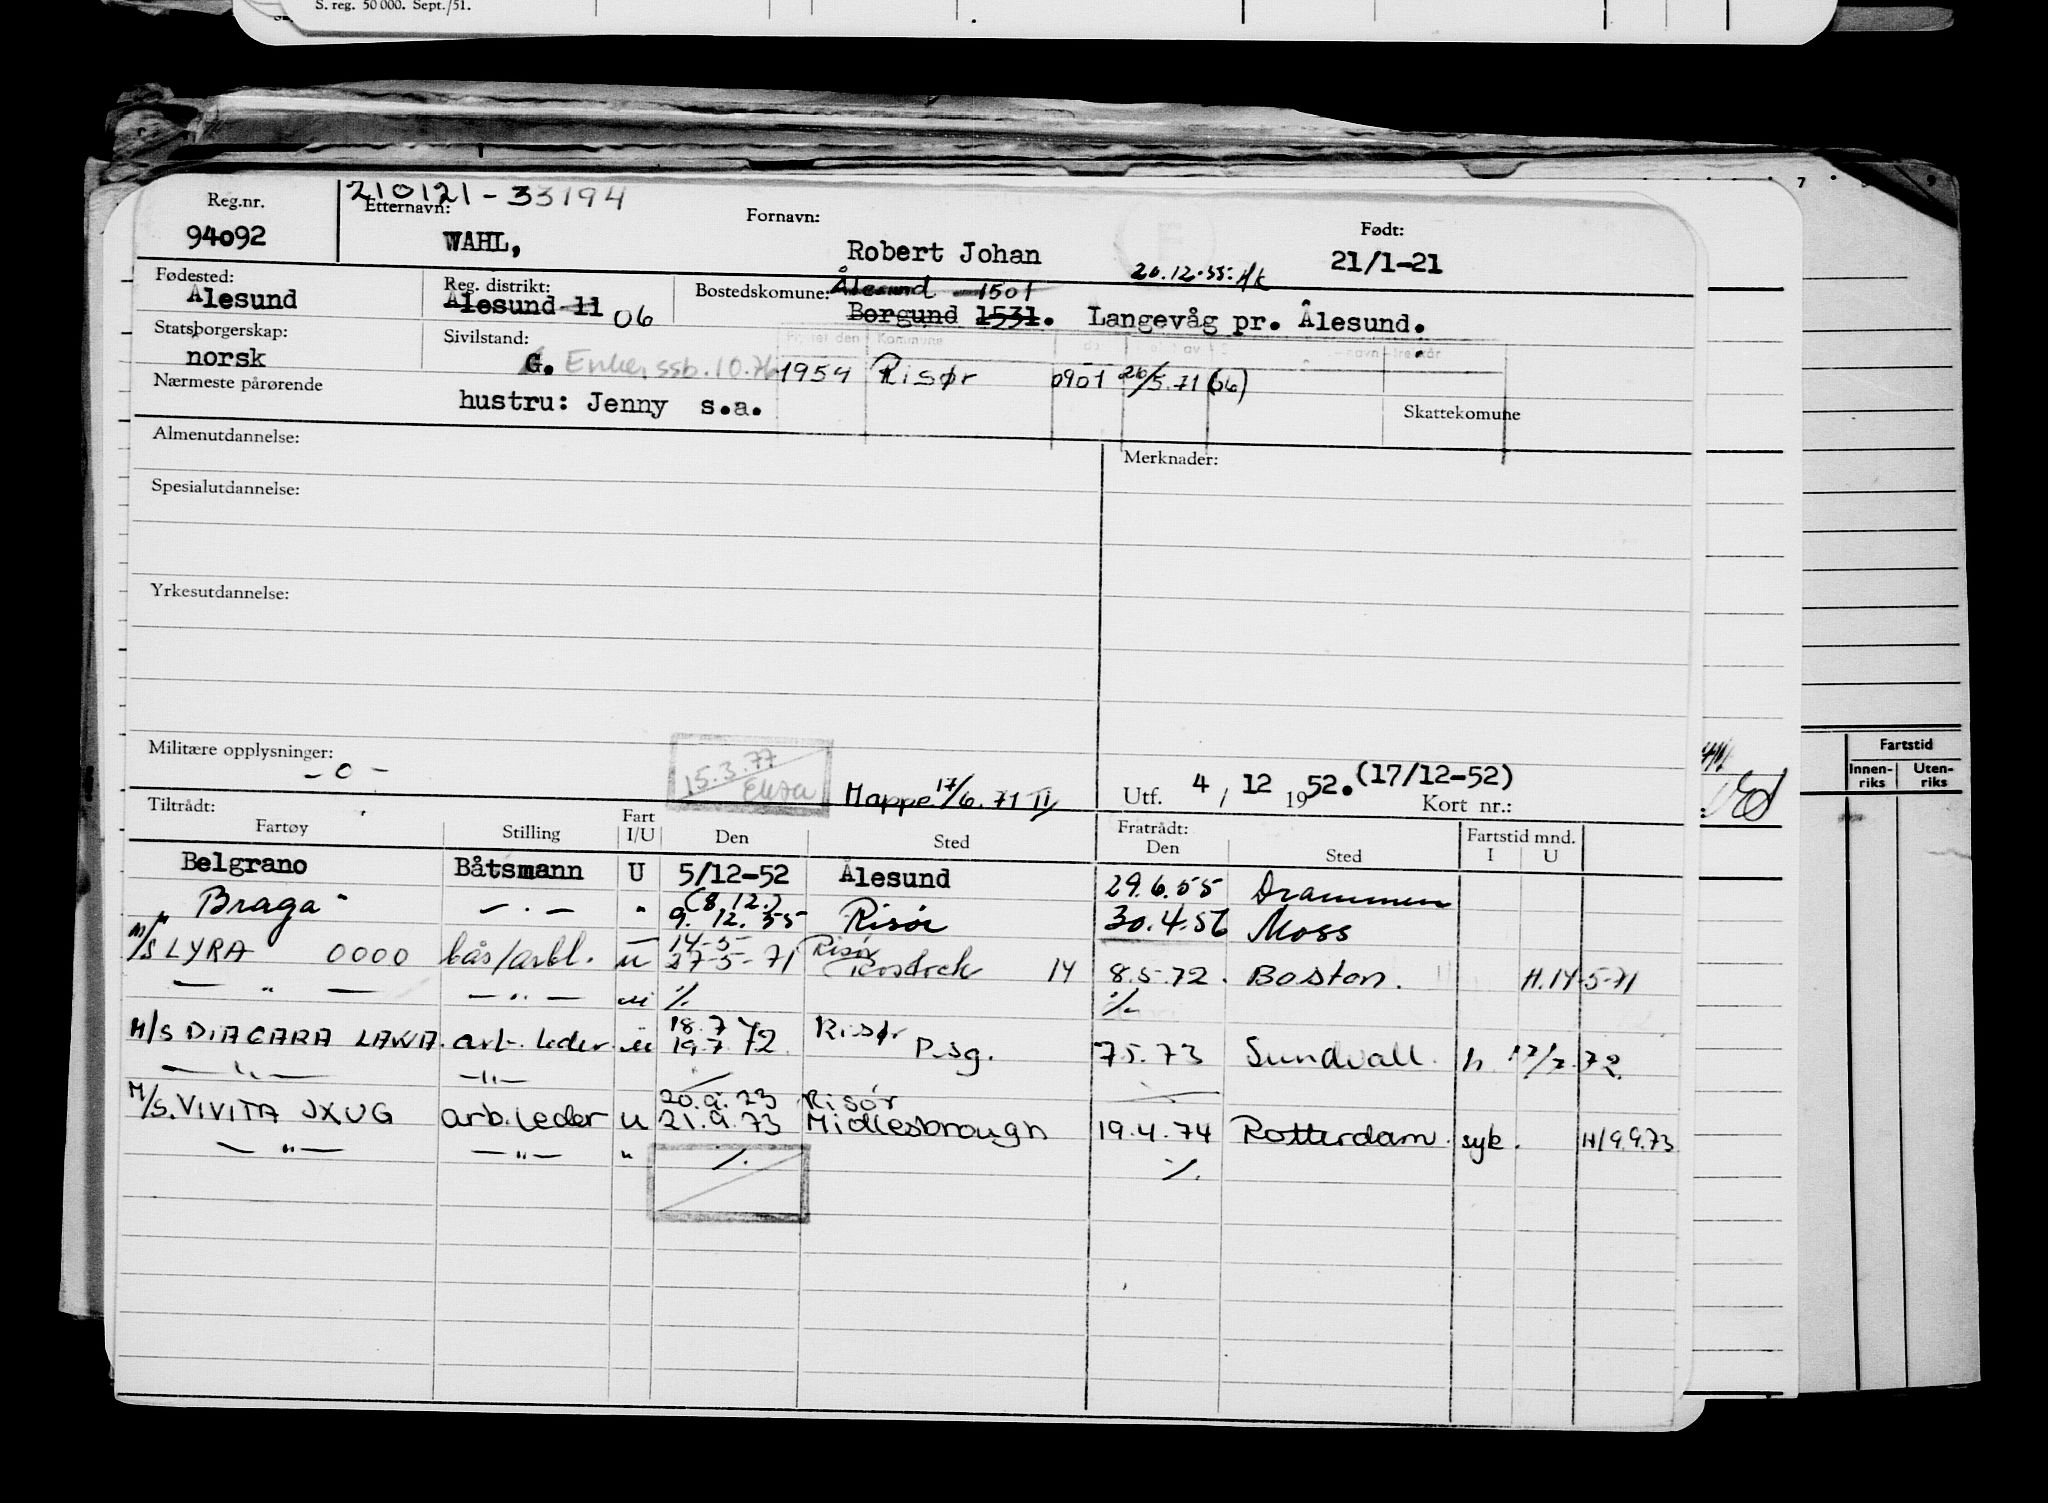 S. reg. 50 000. Sept./51.
Reg.nr. 210121-33194
Etternavn: Fornavn: Født:
94092 WAHL, Robert Johan 21/1-21
20.12.55.
Fødested: Reg. distrikt: Bostedskomune: Ålesund 1501
Ålesund Ålesund 11 06 Borgund 1531. Langevåg pr. Ålesund.
Statsborgerskap: Sivilstand: Kommune
norsk G. Enke, ssb. 10.76 1954 Risør 0901 26/5.71 (06)
Nærmeste pårørende
hustru: Jenny s.a. Skattekomune
Almenutdannelse: Merknader:
Spesialutdannelse:
Yrkesutdannelse:
Militære opplysninger:
- o - 15.3.77 Mappe 17/6. 71 Utf. 4 / 12 1952. (17/12-52)
Kort nr.:
Tiltrådt: Fratrådt: Fartstid mnd.
Fartøy Stilling Fart I/U Den Sted Den Sted I U
Belgrano Båtsmann U 5/12-52 Ålesund 29.6.55 Drammen
"Braga" — . — " (8.12.) 9. 12. 55 Risør 30.4.56 Moss
M/S LYRA 0000 bås/arbl. u 14-5- 27-5-71 Risør 14 8.5.72. Boston. H.14-5-71
— " — — " — u ./. ./.
M/S DIAGARA LAWA. arb. leder. u 18.7 19.7 72 Risør P.sg. 7.5.73 Sundvall. h 17/7.72.
— " — — " —
20.9.73 Risør
M/S. VIVITA JXUG arb.leder u 21.9.73 Midlesbrough 19.4.74 Rotterdam. syk. H/9.9.73
— " — — " — " ./. ./.
Fartstid
Innen-riks Uten-riks